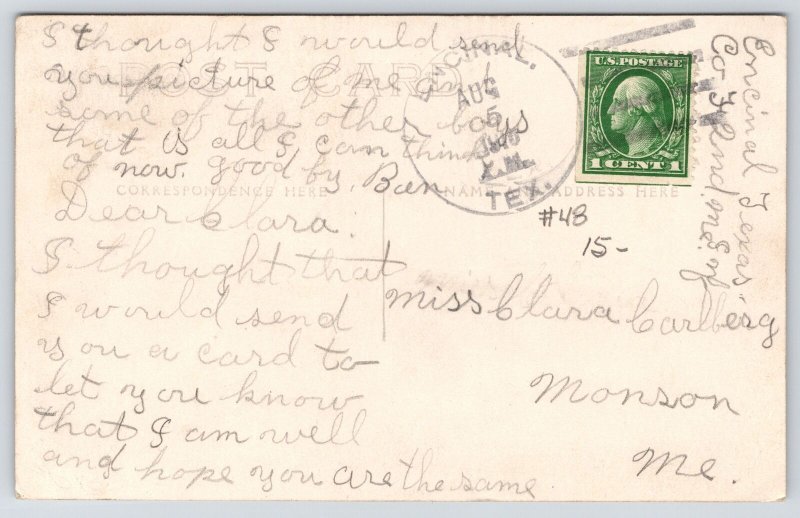 I thought I would send
you picture of me and
some of the other boys
that is all I can think
of now. good by. Ben
POST CARD
CORRESPONDENCE HERE
NAME AND ADDRESS HERE
Dear Clara.
I thought that
I would send
you a card to
let you know
that I am well
and hope you are the same
ENCINAL.
AUG
5
A.M.
TEX.
U.S. POSTAGE
1 CENT 1
#48
15-
Miss Clara Carlberg
Monson
Me.
Encinal Texas.
Co I 2nd Me. Inf